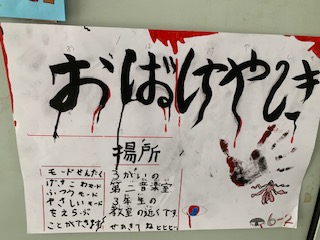 おばけやしき
場所
3がいの
第二音楽室
3年生の
教室の近くです
モードせんたく
げきこわモード
ふつうモード
やさしいモード
をえらぶ
ことができます!
6-2